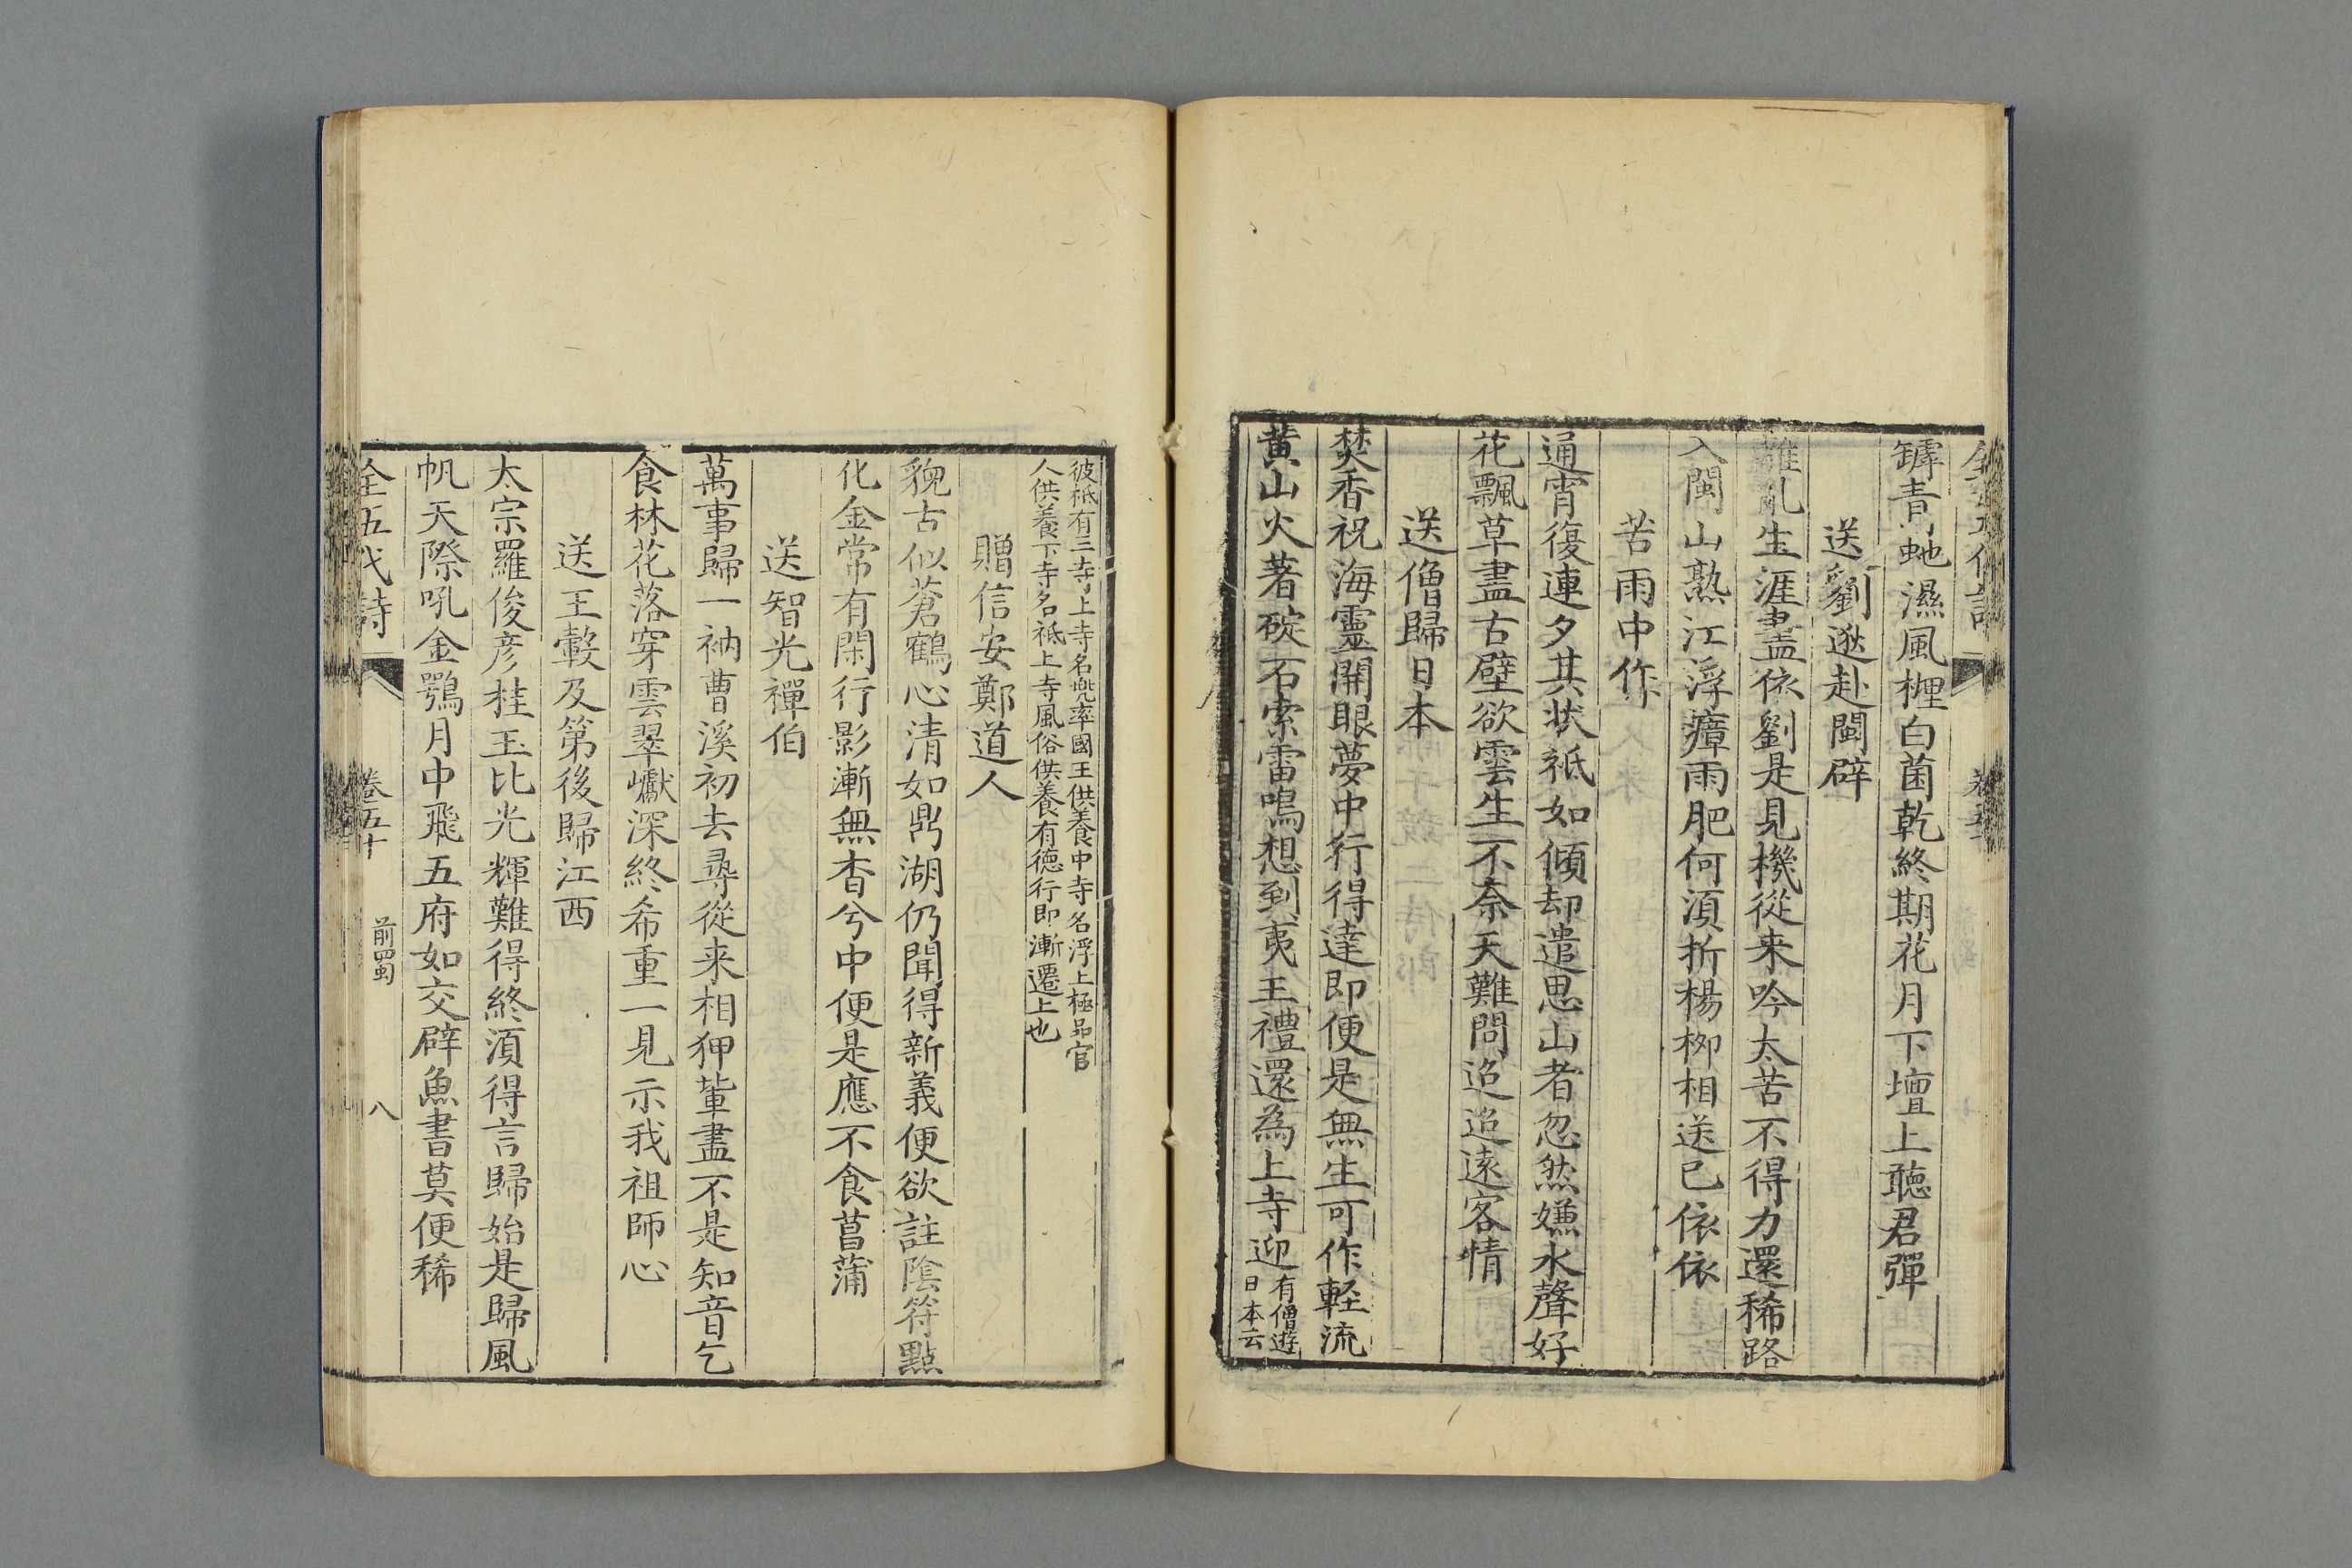 罅青虵濕風檉白菌乾終期花月下壇上聽君彈
送劉逖赴閩辟
離亂生涯盡依劉是見機從来吟太苦不得力還稀路
入閩山熟江浮瘴雨肥何湏折楊栁相送已依依
苦雨中作
通宵復連夕其状祗如傾却遣思山者忽然嫌水聲好
花飄草盡古壁欲雲生不奈天難問迢迢遠客情
送僧歸日本
焚香祝海靈開眼夢中行得達即便是無生可作輕流
黄山火著碇石索雷鳴想到夷王禮還為上寺迎
有僧遊
日本云
彼祗有三寺上寺名兠率國王供養中寺名浮上極品官
人供養下寺名祗上寺風俗供養有德行即漸遷上也
贈信安鄭道人
貌古似蒼鶴心清如鼎湖仍聞得新義便欲註陰符點
化金常有閑行影漸無杳兮中便是應不食菖蒲
送智光禪伯
萬事歸一衲曹溪初去尋從来相狎輩盡不是知音乞
食林花落穿雲翠巘深終希重一見示我祖師心
送王轂及第後歸江西
太宗羅俊彦桂玉比光輝難得終湏得言歸始是歸風
帆天際吼金鶚月中飛五府如交辟魚書莫便稀
全五代詩
卷五十
前蜀
八